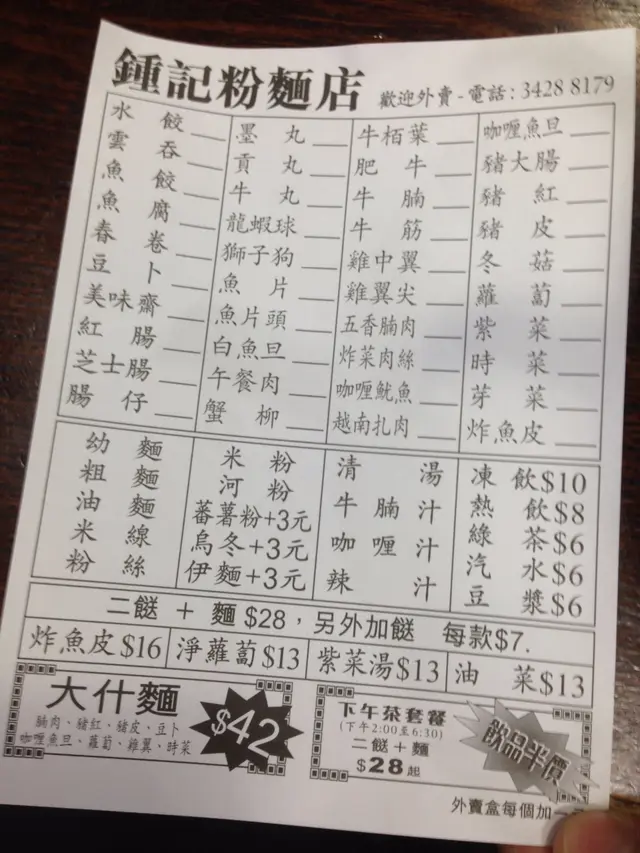 鍾記粉麵店
歡迎外賣 - 電話 : 3428 8179
水餃
雲吞
魚餃
魚腐
春卷
豆卜
美味齋
紅腸
芝士腸
腸仔
墨丸
貢丸
牛丸
龍蝦球
獅子狗
魚片
魚片頭
白魚旦
午餐肉
蟹柳
牛栢葉
肥牛
牛腩
牛筋
雞中翼
雞翼尖
五香腩肉
炸菜肉絲
咖喱魷魚
越南扎肉
咖喱魚旦
豬大腸
豬紅
豬皮
冬菇
蘿蔔
紫菜
時菜
芽菜
炸魚皮
幼麵
粗麵
油麵
米線
粉絲
米粉
河粉
蕃薯粉+3元
烏冬+3元
伊麵+3元
清湯
牛腩汁
咖喱汁
辣汁
凍飲$10
熱飲$8
綠茶$6
汽水$6
豆漿$6
二餸 + 麵 $28，另外加餸 每款$7.
炸魚皮$16
淨蘿蔔$13
紫菜湯$13
油菜$13
大什麵
腩肉、豬紅、豬皮、豆卜
咖喱魚旦、蘿蔔、雞翼、時菜
$42
下午茶套餐
(下午2:00至6:30)
二餸 + 麵
$28起
飲品半價
外賣盒每個加一